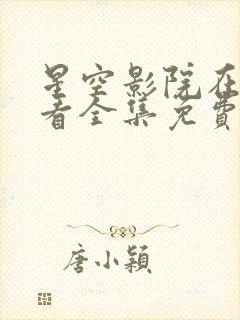 星空影院在
看全集免费
唐小颖